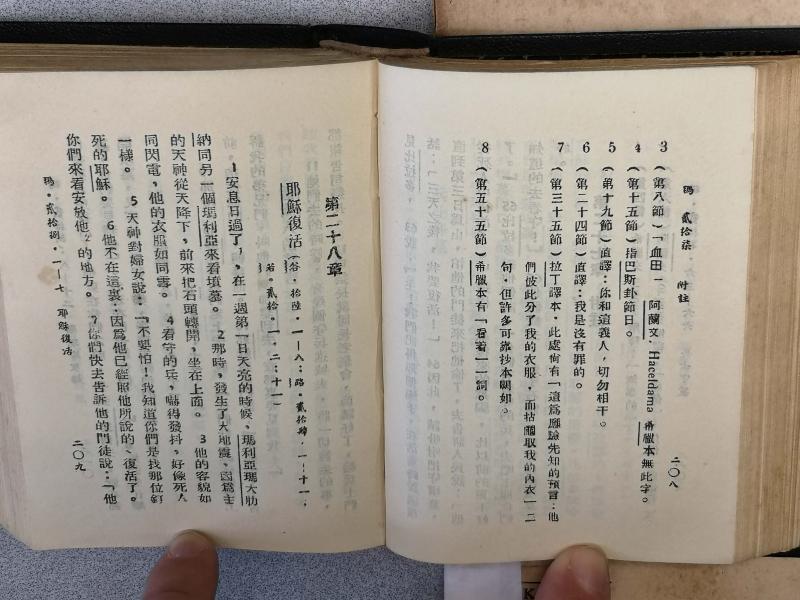 瑪·貳拾柒 附註 二〇八
3（第八節）「血田」阿蘭文，Haceldama 希臘本無此字。
4（第十五節）指巴斯卦節日。
5（第十九節）直譯：你和這義人，切勿相干。
6（第二十四節）直譯：我是沒有罪的。
7（第三十五節）拉丁譯本，此處尚有「這為應驗先知的預言：他
們彼此分了我的衣服，而拈鬮取我的內衣」二
句，但許多可靠抄本闕如。
8（第五十五節）希臘本有「看着」一詞。
第二十八章
耶穌復活（谷·拾陸·一—八；路·貳拾肆·一—十一，
若·貳拾·一，二；十一）
1安息日過了，，在一週第一日天亮的時候，瑪利亞瑪大肋
納同另一個瑪利亞來看墳墓。 2那時，發生了大地震，因為主
的天神從天降下，前來把石頭轉開，坐在上面。 3他的容貌如
同閃電，他的衣服如同雪。 4看守的兵，嚇得發抖，好像死人
一樣。 5天神對婦女說：「不要怕！我知道你們是找那位釘
死的耶穌。 6他不在這裏：因為他已經照他所說的、復活了。
你們來看安放他2的地方。 7你們快去告訴他的門徒說：「他
瑪·貳拾捌·一—七 耶穌復活 二〇九